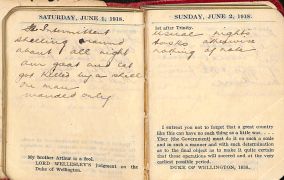 SATURDAY, JUNE 1, 1918.
Intermittent
shelling around
about all night
our goat and cat
got killed by a shell
one man
wounded only
My brother Arthur is a fool.
LORD WELLESLEY'S judgment on the
Duke of Wellington.
SUNDAY, JUNE 2, 1918.
1st after Trinity.
usual nights
works otherwise
nothing of note
I entreat you not to forget that a great country
like this can have no such thing as a little war. . . .
They (the Government) must do it on such a scale
and in such a manner and with such determination
as to the final object as to make it quite certain
that those operations will succeed and at the very
earliest possible period.
DUKE OF WELLINGTON, 1838.